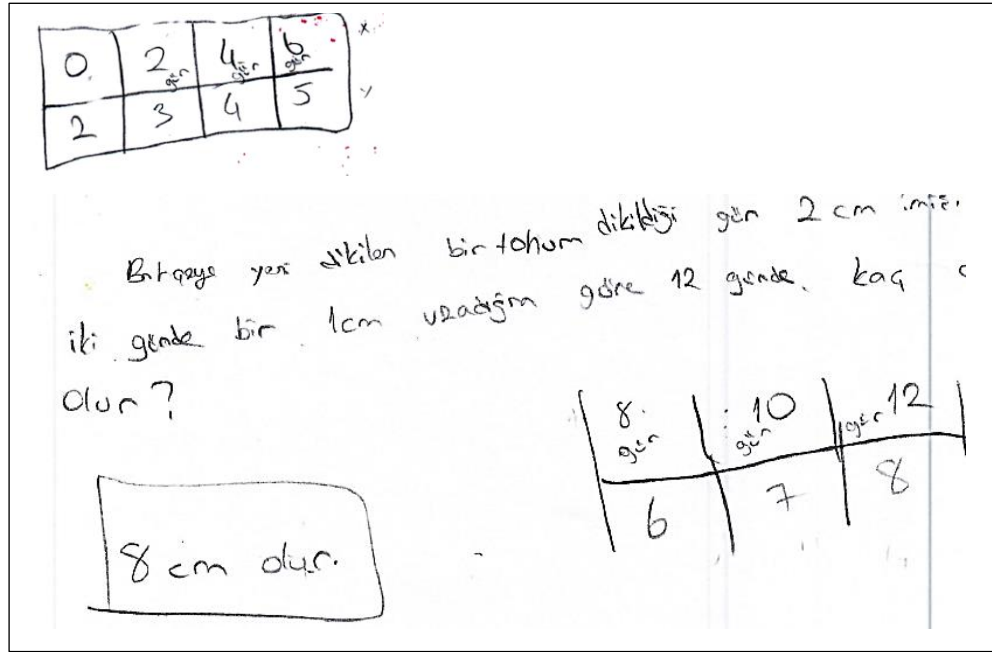 0 2 gün 4 gün 6 gün x
2 3 4 5 y
Bahçeye yeni dikilen bir tohum dikildiği gün 2 cm imiş.
iki günde bir 1cm uzadığına göre 12 günde kaç c
olur?
8 gün 10 gün gün 12
6 7 8
8 cm olur.